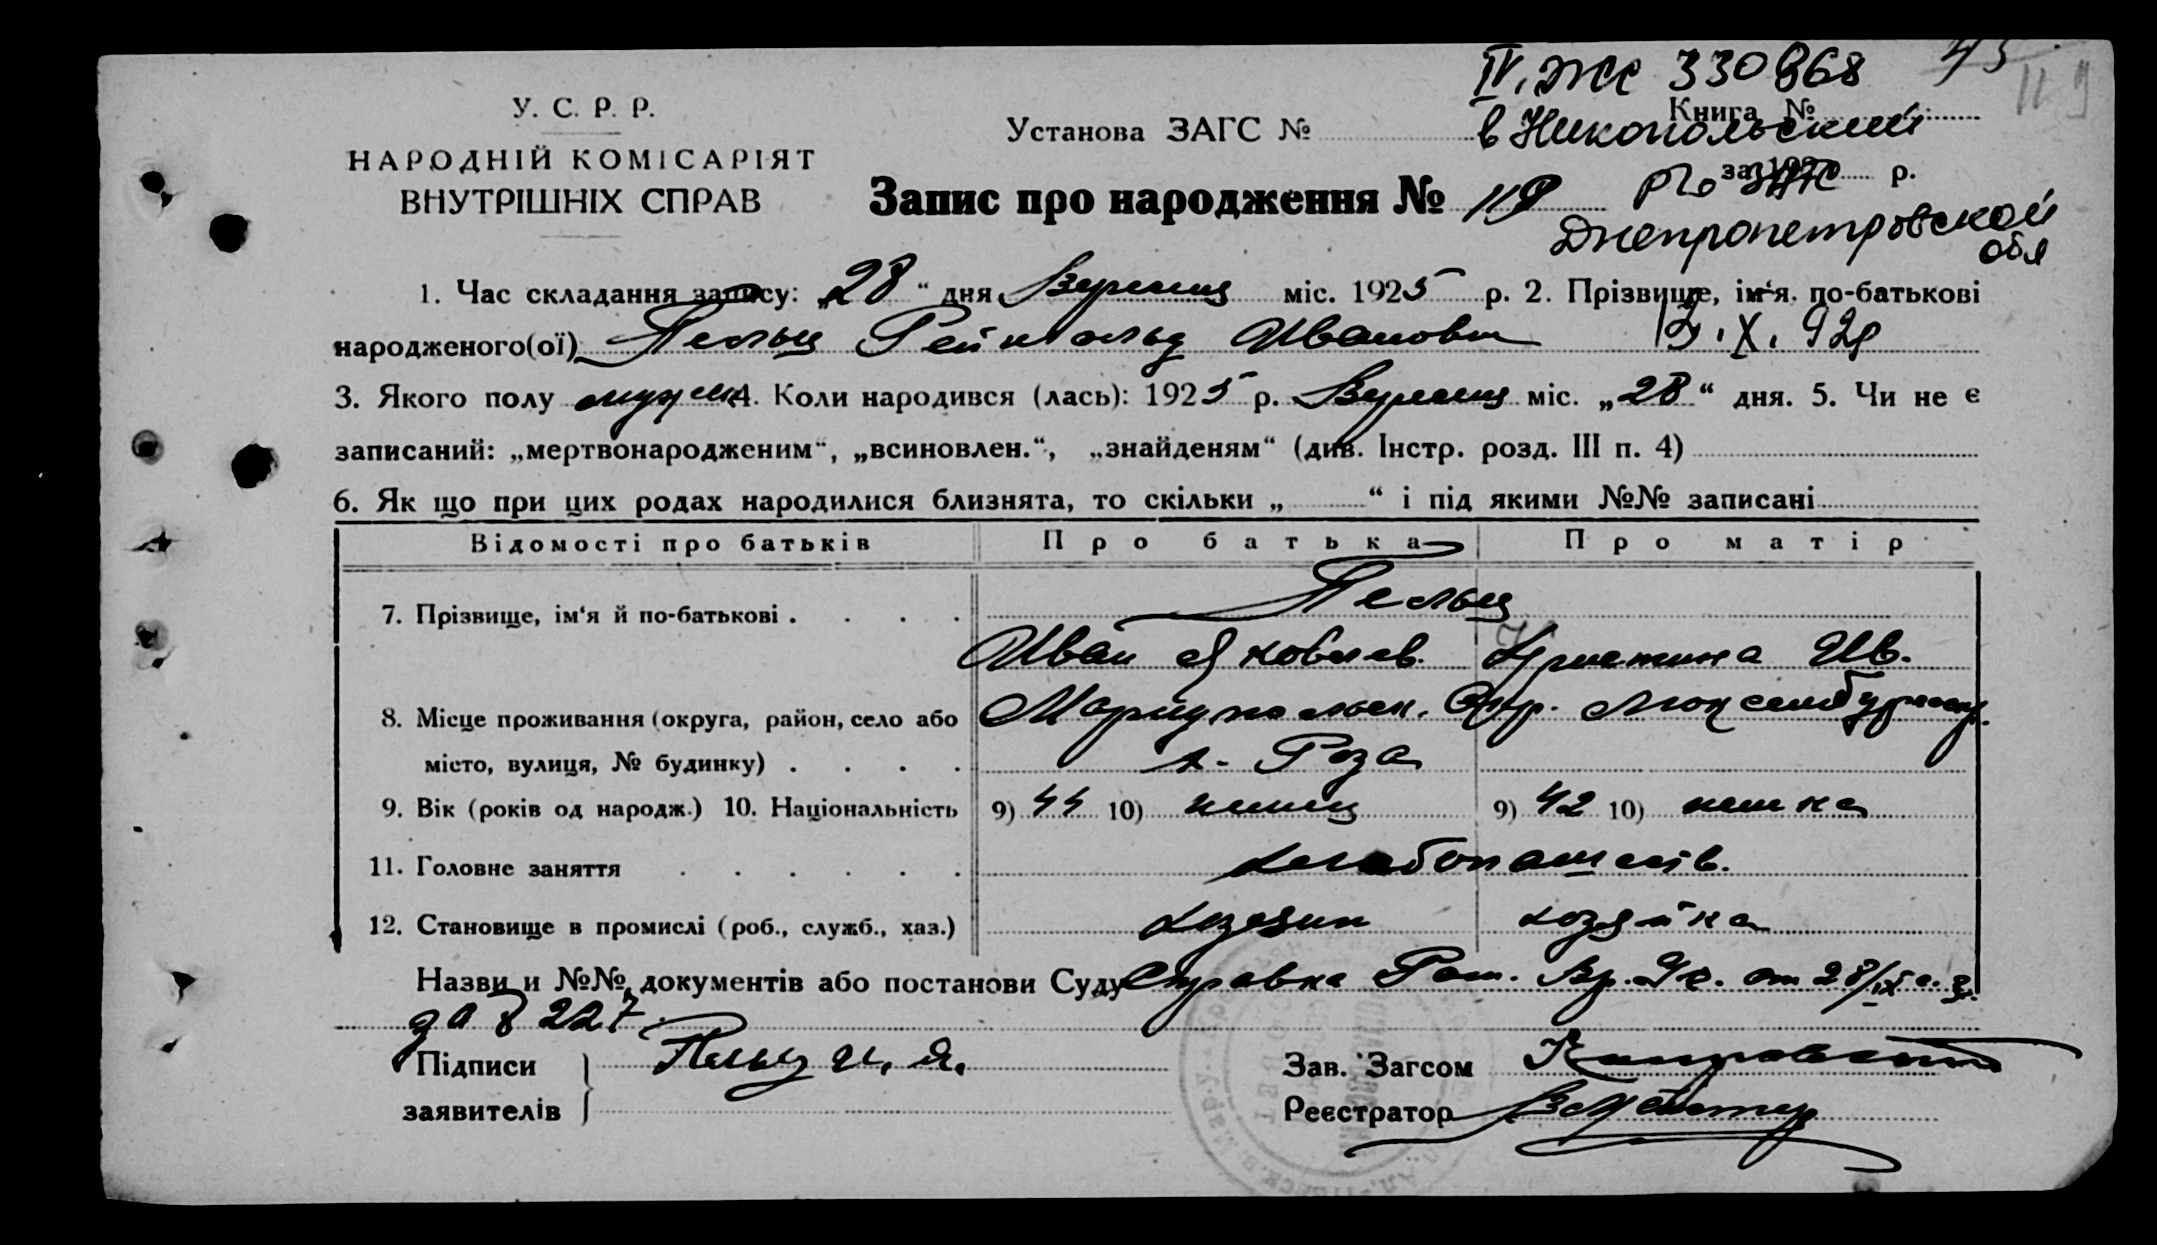 IV. ЖС 330868
У. С. Р. Р.
НАРОДНІЙ КОМІСАРІЯТ
ВНУТРІШНІХ СПРАВ
Установа ЗАГС №
Книга №
в Никопольский
за 192 р.
Запис про народження № 119
Днепропетровской
обл
1. Час складання запису: „28“ дня Вересня міс. 1925 р. 2. Прізвище, ім‘я, по-батькові
народженого(ої) Пельц Рейнгольд Иванович
3. Якого полу мужеск 4. Коли народився (лась): 1925 р. Вересня міс. „28“ дня. 5. Чи не є
записаний: „мертвонародженим“, „всиновлен.“, „знайденям“ (див. Інстр. розд. III п. 4)
6. Як що при цих родах народилися близнята, то скільки „ “ і під якими №№ записані
Відомості про батьків Про батька Про матір
7. Прізвище, ім‘я й по-батькові . . . . Пельц
Иван Яковлев. Христина Ив.
8. Місце проживання (округа, район, село або Мариупольск. Окр. Люксембургск.
місто, вулиця, № будинку) . . . . к. Роза
9. Вік (років од народж.) 10. Національність 9) 44 10) немец 9) 42 10) немка
11. Головне заняття . . . . . . хлебопашеств.
12. Становище в промислі (роб., служб., хаз.) хозяин хозяйка
Назви и №№ документів або постанови Суду Справка от 28/IX с. г.
за № 227.
Підписи Пельц И. Я. Зав. Загсом
заявителів Реєстратор